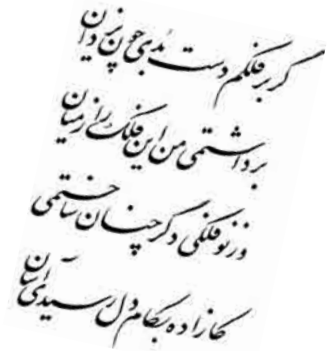 گر بر فلکم دست بدی چون یزدان
برداشتمی من این فلک را ز میان
وز نو فلکی دگر چنان ساختمی
کازاده بکام دل رسیدی آسان